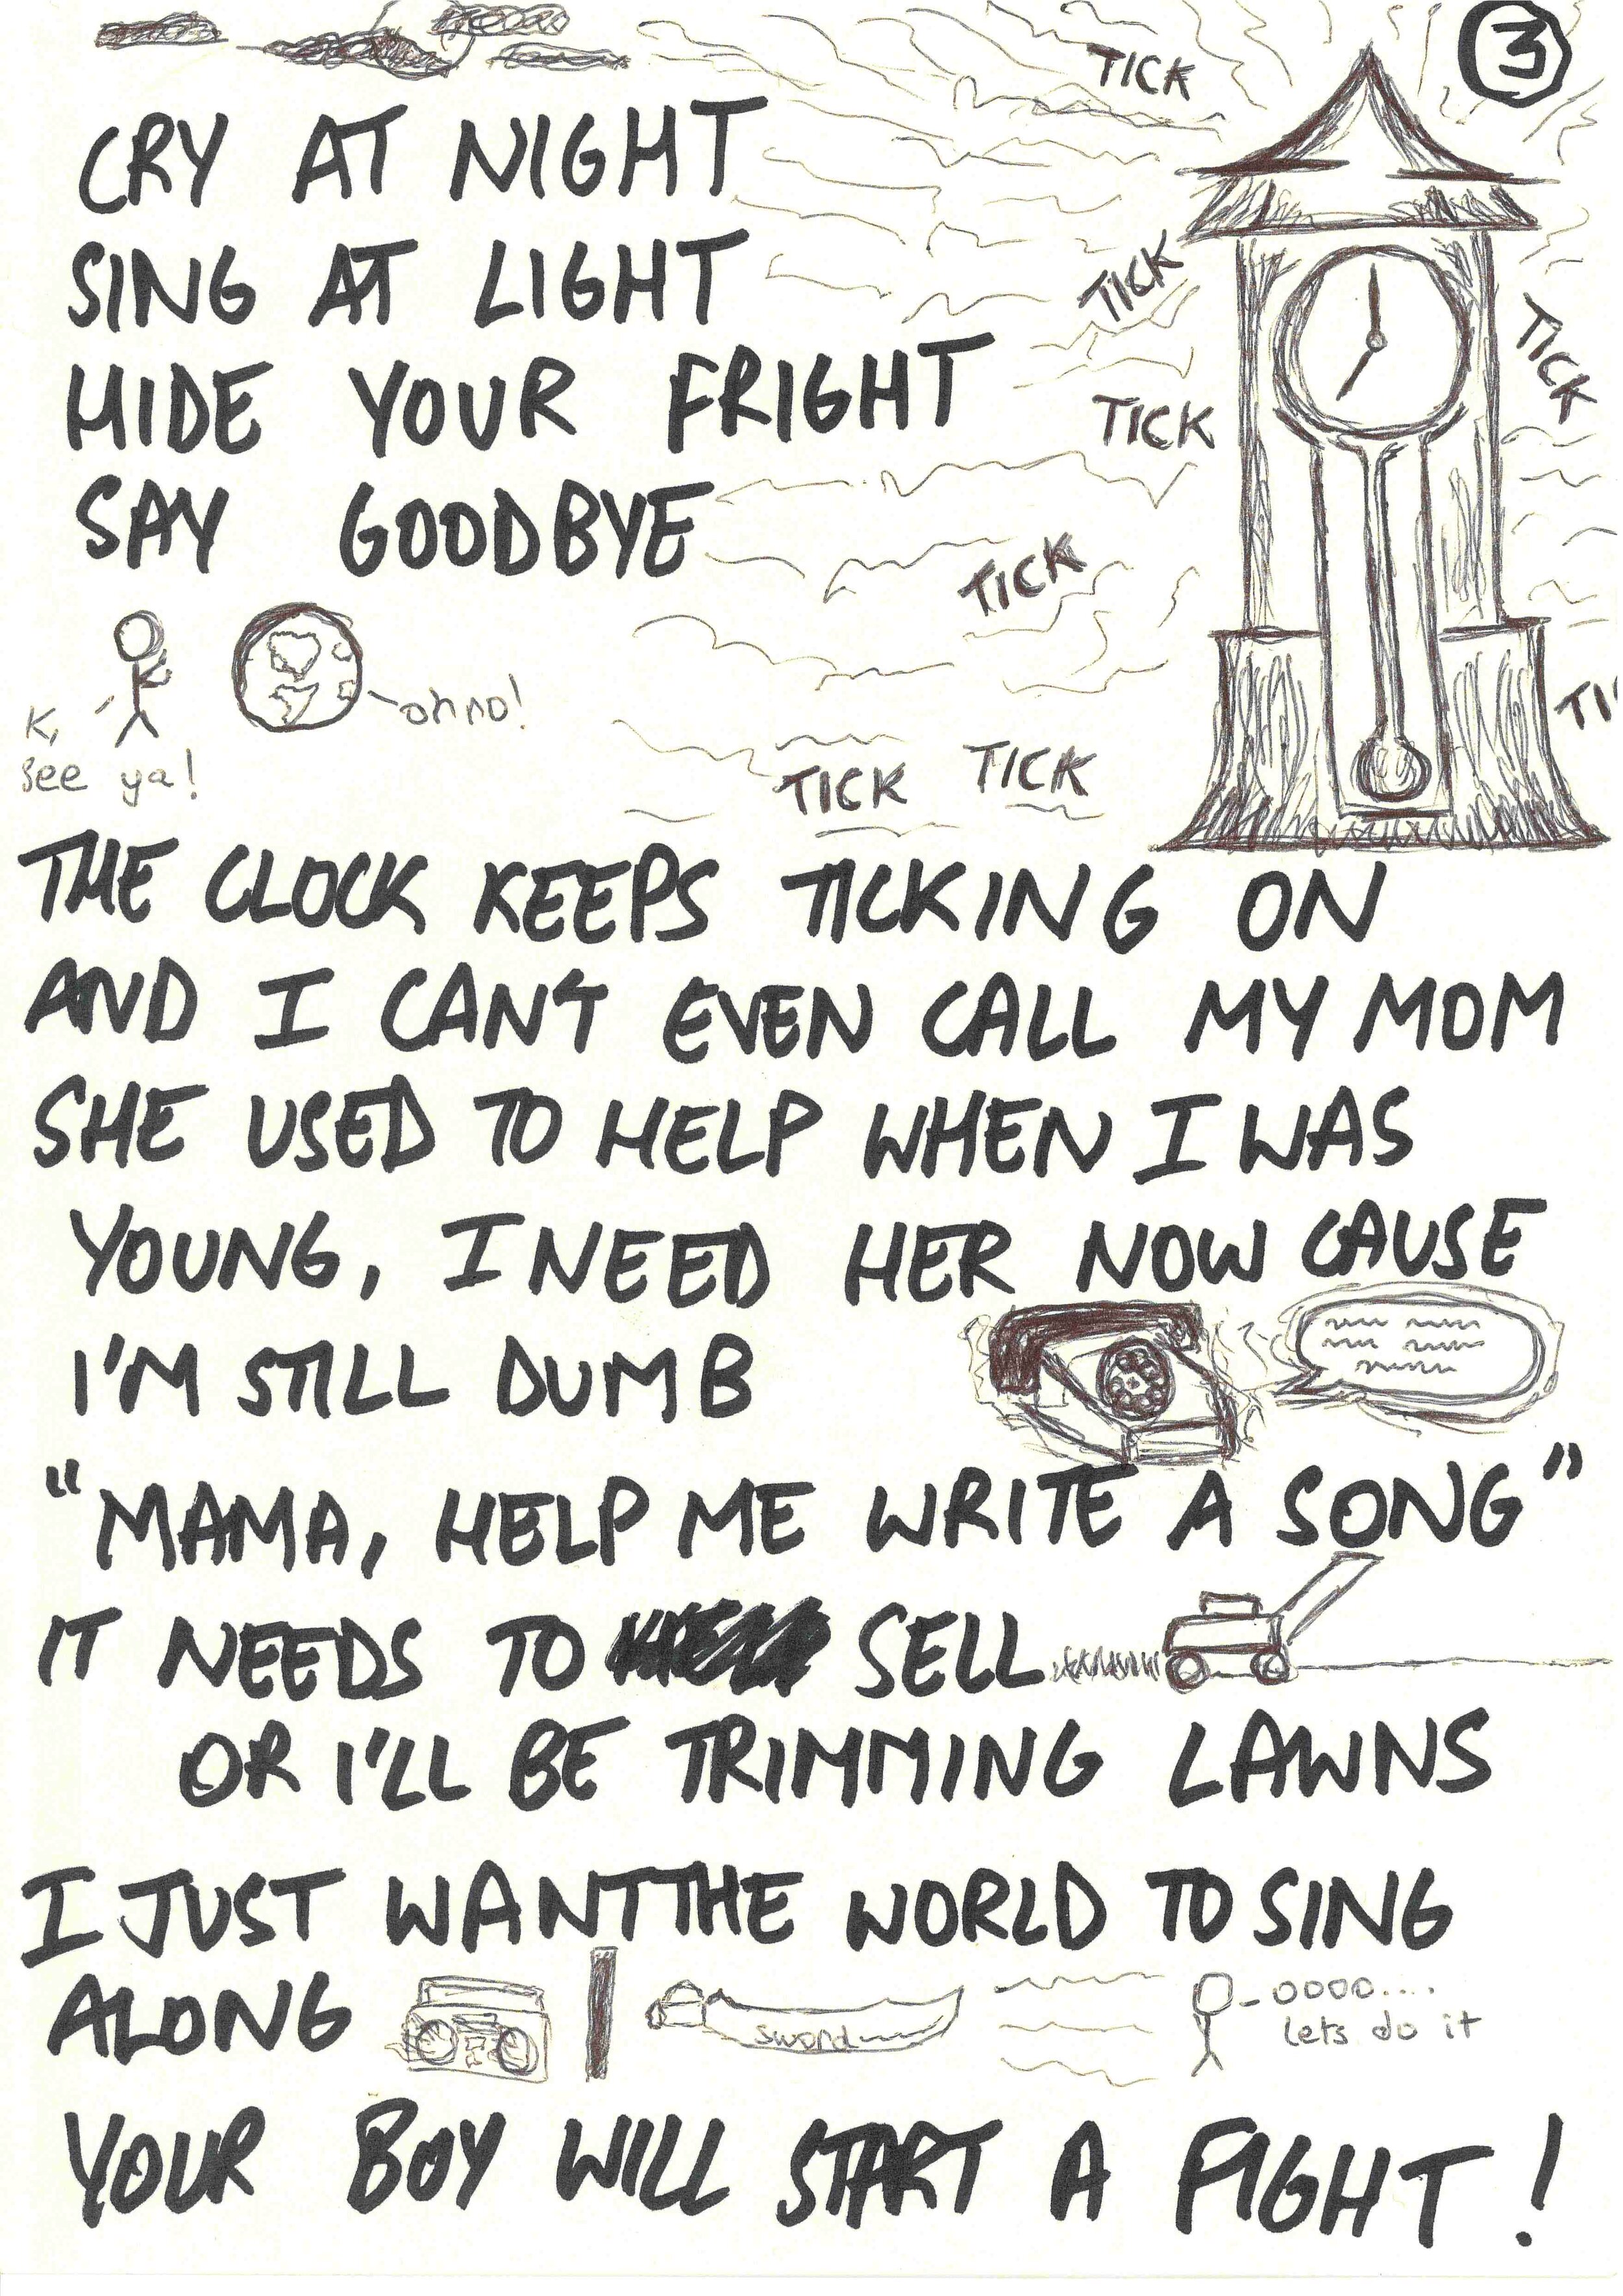 3
TICK
CRY AT NIGHT
SING AT LIGHT
TICK
TICK
HIDE YOUR FRIGHT
TICK
SAY GOODBYE
TICK
K,
see ya!
oh no!
TI
TICK TICK
THE CLOCK KEEPS TICKING ON
AND I CAN'T EVEN CALL MY MOM
SHE USED TO HELP WHEN I WAS
YOUNG, I NEED HER NOW CAUSE
I'M STILL DUMB
"MAMA, HELP ME WRITE A SONG"
IT NEEDS TO SELL
OR I'LL BE TRIMMING LAWNS
I JUST WANT THE WORLD TO SING
ALONG
sword
oooo....
lets do it
YOUR BOY WILL START A FIGHT!